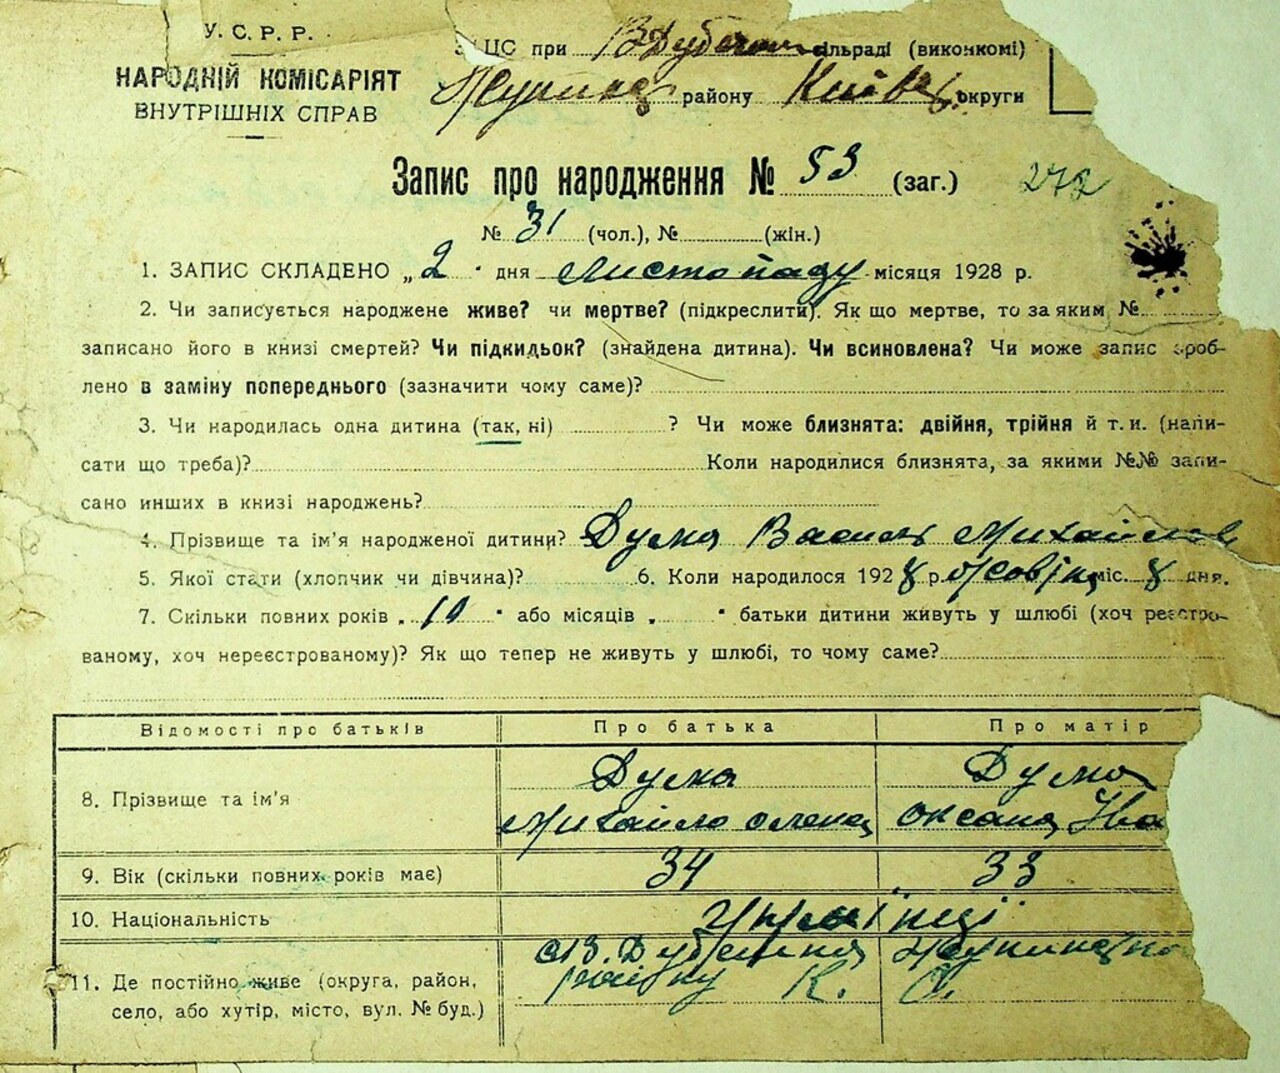 У. С. Р. Р.
НАРОДНІЙ КОМІСАРІЯТ
ВНУТРІШНІХ СПРАВ
ЗАЦС при В Дубечан сільраді (виконкомі)
району Київськ округи
Запис про народження № 53 (заг.) 272
№ 31 (чол.), № (жін.)
1. ЗАПИС СКЛАДЕНО „2" дня Листопаду місяця 1928 р.
2. Чи записується народжене живе? чи мертве? (підкреслити). Як що мертве, то за яким №
записано його в книзі смертей? Чи підкидьок? (знайдена дитина). Чи всиновлена? Чи може запис зроб-
лено в заміну попереднього (зазначити чому саме)?
3. Чи народилась одна дитина (так, ні) ? Чи може близнята: двійня, трійня й т. и. (напи-
сати що треба)? Коли народилися близнята, за якими №№ запи-
сано инших в книзі народжень?
4. Прізвище та ім'я народженої дитини? Дума Василь Михайлов
5. Якої стати (хлопчик чи дівчина)? 6. Коли народилося 1928 р. міс. 8 дня.
7. Скільки повних років „10" або місяців „ " батьки дитини живуть у шлюбі (хоч реєстро-
ваному, хоч нереєстрованому)? Як що тепер не живуть у шлюбі, то чому саме?
Відомості про батьків Про батька Про матір
8. Прізвище та ім'я Дума Дума
Михайло Оксана Іва
9. Вік (скільки повних років має) 34 33
10. Національність Українці
11. Де постійно живе (округа, район,
село, або хутір, місто, вул. № буд.)
с. В. Дубечня
району К. О.